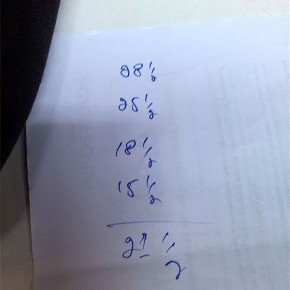 28 1/2
25 1/2
18 1/2
15 1/2
1/2